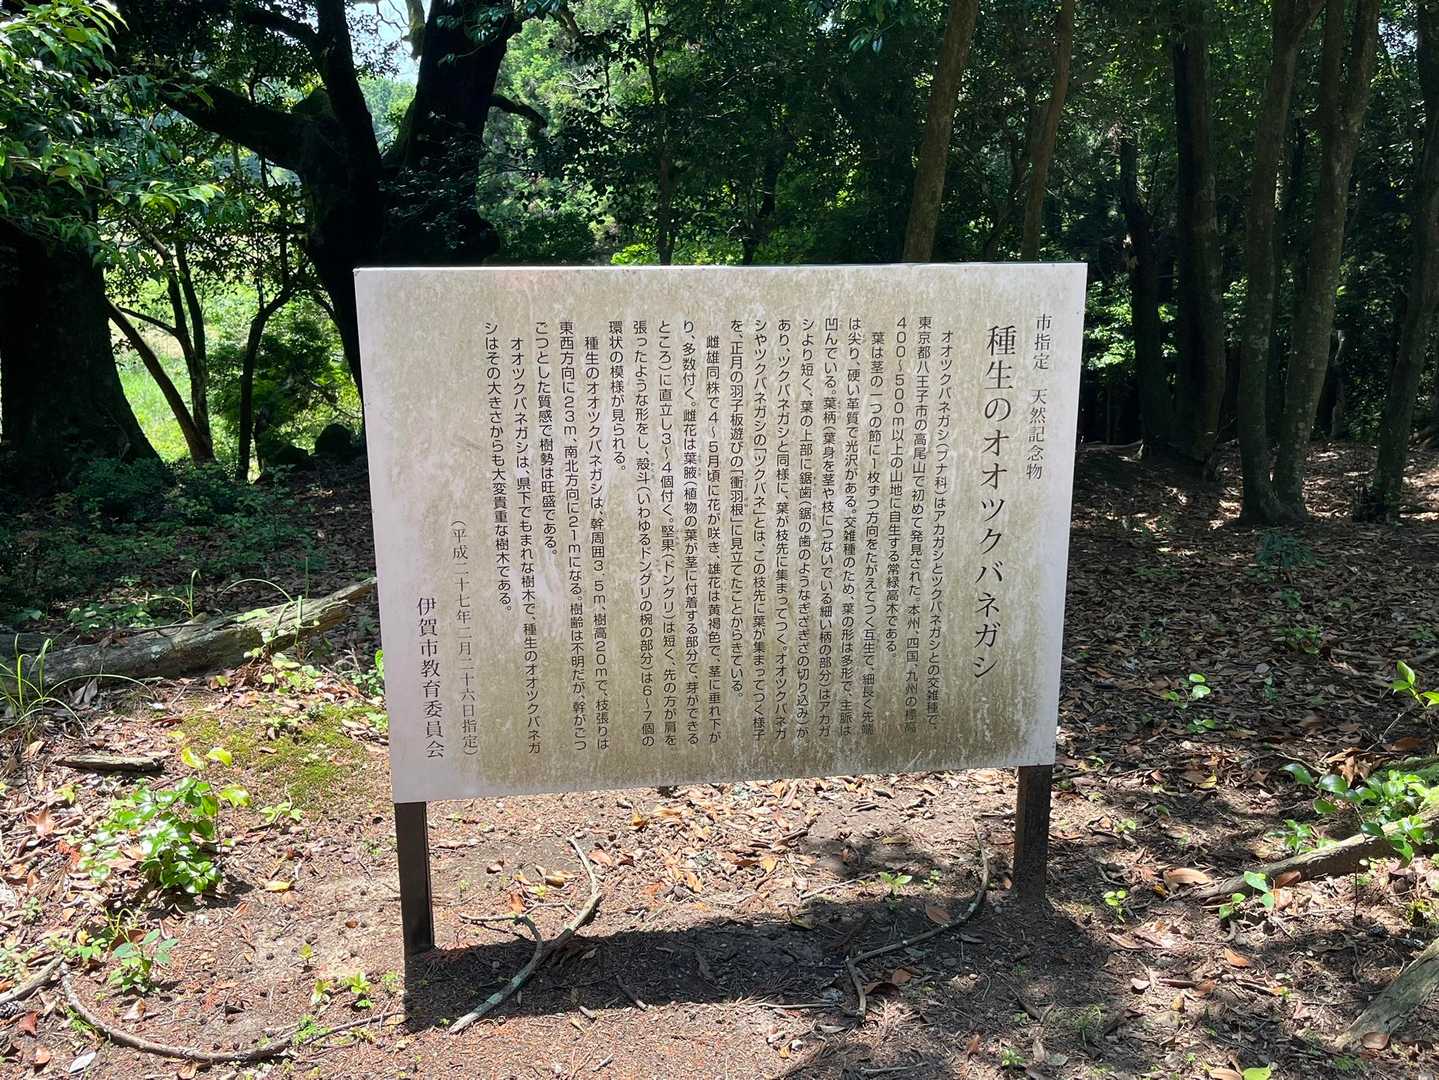 市指定　天然記念物
種生のオオツクバネガシ
オオツクバネガシ(ブナ科)はアカガシとツクバネガシとの交雑種で、
東京都八王子市の高尾山で初めて発見された。本州、四国、九州の標高
400～500m以上の山地に自生する常緑高木である。
葉は茎の一つの節に1枚ずつ方向をたがえてつく互生で、細長く先端
は尖り、硬い革質で光沢がある。交雑種のため、葉の形は多形で、主脈は
凹んでいる。葉柄(葉身を茎や枝につないでいる細い柄の部分)はアカガ
シより短く、葉の上部に鋸歯(鋸の歯のようなぎざぎざの切り込み)が
あり、ツクバネガシと同様に、葉が枝先に集まってつく。オオツクバネガ
シやツクバネガシの「ツクバネ」とは、この枝先に葉が集まってつく様子
を、正月の羽子板遊びの「衝羽根」に見立てたことからきている。
雌雄同株で4～5月頃に花が咲き、雄花は黄褐色で、茎に垂れ下が
り、多数付く。雌花は葉腋(植物の葉が茎に付着する部分で、芽ができる
ところ)に直立し3～4個付く。堅果(ドングリ)は短く、先の方が肩を
張ったような形をし、殻斗(いわゆるドングリの椀の部分)は6～7個の
環状の模様が見られる。
種生のオオツクバネガシは、幹周囲3.5m、樹高20mで、枝張りは
東西方向に23m、南北方向に21mになる。樹齢は不明だが、幹がごつ
ごつとした質感で樹勢は旺盛である。
オオツクバネガシは、県下でもまれな樹木で、種生のオオツクバネガ
シはその大きさからも大変貴重な樹木である。
(平成二十七年二月二十六日指定)
伊賀市教育委員会